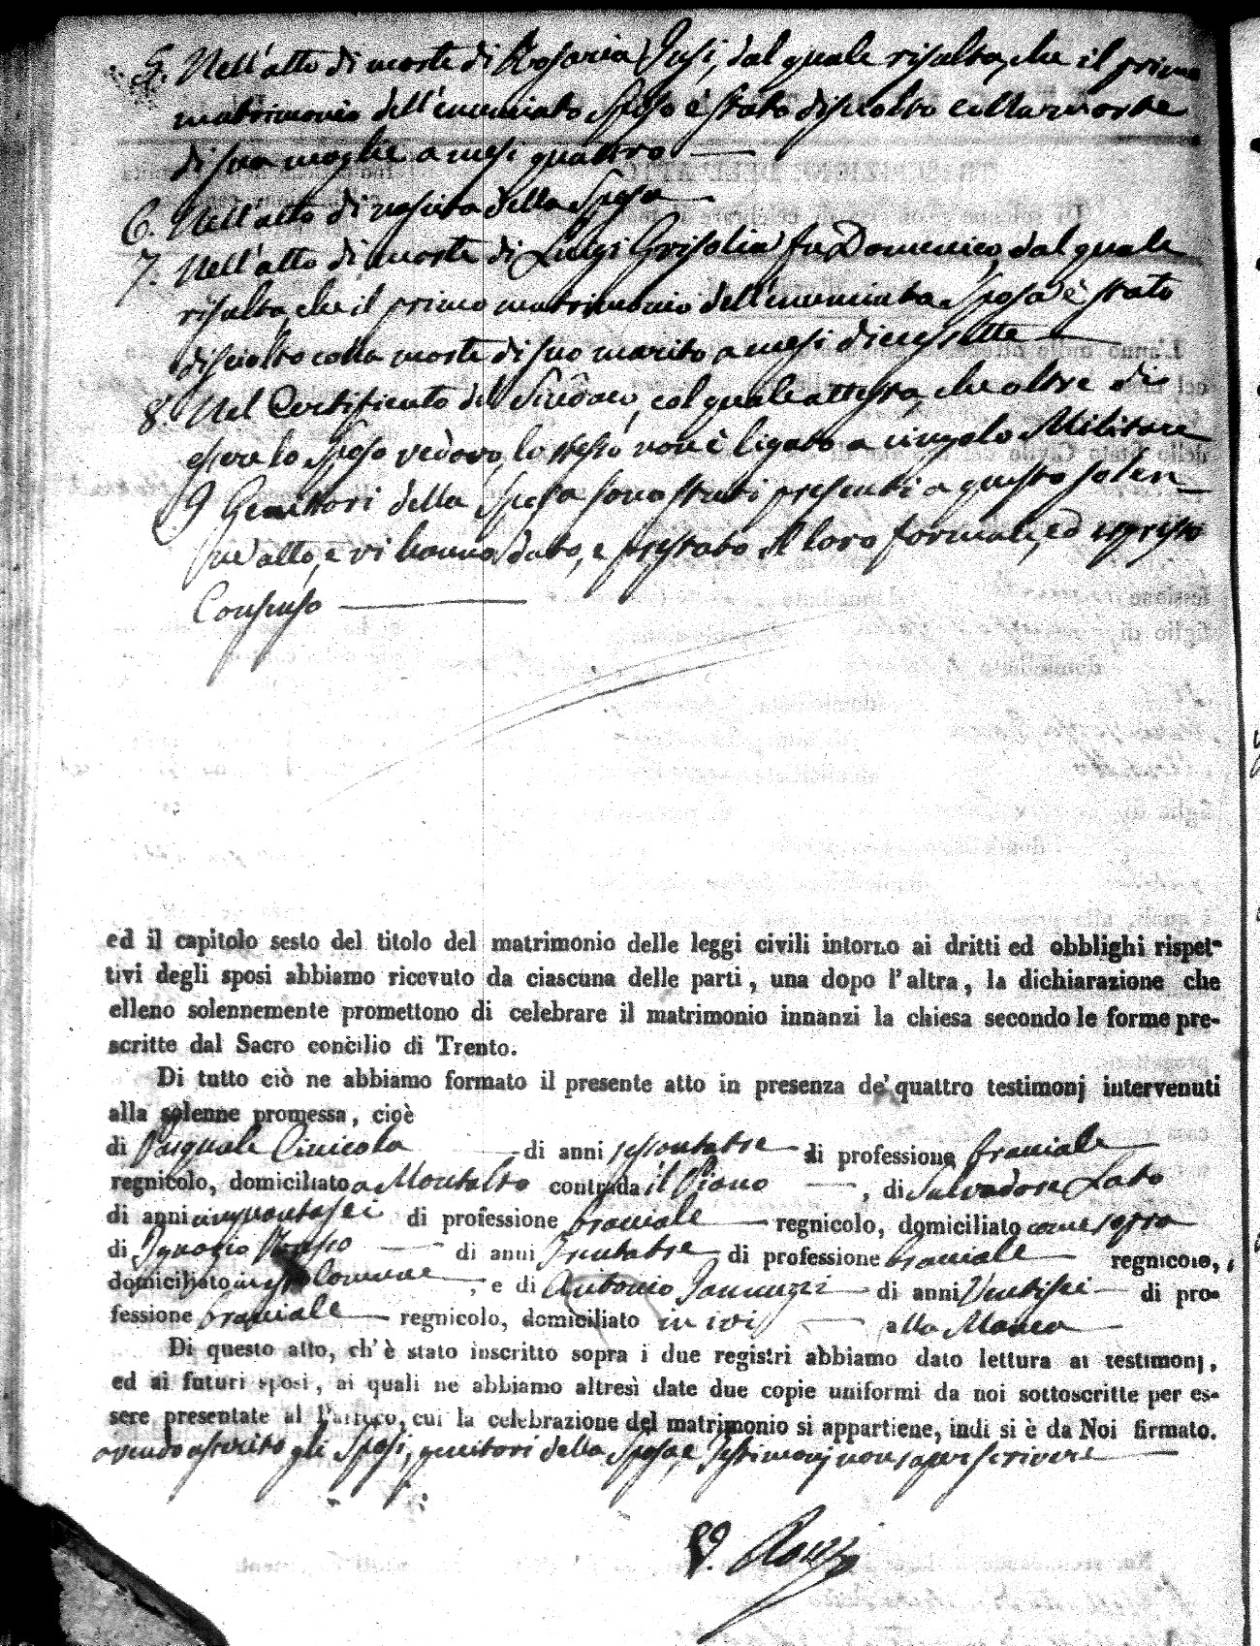 5. Nell'atto di morte di Rosaria Fusi, dal quale risulta, che il primo
matrimonio dell'enunciato Sposo è stato disciolto colla morte
di sua moglie a mesi quattro —
6. Nell'atto di nascita della Sposa —
7. Nell'atto di morte di Luigi Grisolia fu Domenico, dal quale
risulta, che il primo matrimonio dell'enunciata Sposa è stato
disciolto colla morte di suo marito a mesi diecissette —
8. Nel Certificato del Sindaco, col quale attesta, che oltre di
essere lo Sposo vedovo, lo stesso non è ligato a cingolo Militare
I Genitori della Sposa sono stati presenti a questo solen-
ne atto, e vi hanno dato, e prestato il loro formale, ed espresso
Consenso —
ed il capitolo sesto del titolo del matrimonio delle leggi civili intorno ai dritti ed obblighi rispet-
tivi degli sposi abbiamo ricevuto da ciascuna delle parti, una dopo l'altra, la dichiarazione che
elleno solennemente promettono di celebrare il matrimonio innanzi la chiesa secondo le forme pre-
scritte dal Sacro concilio di Trento.
Di tutto ciò ne abbiamo formato il presente atto in presenza de' quattro testimonj intervenuti
alla solenne promessa, cioè
di Pasquale Cinicola — di anni sessantatre di professione bracciale —
regnicolo, domiciliato a Montalto contrada il Piano —, di Salvadore Lato
di anni cinquantasei di professione bracciale — regnicolo, domiciliato come sopra
di Ignazio — di anni Trentatre di professione bracciale regnicolo,
domiciliato in Comune —, e di Antonio Jannuzzi — di anni Ventisei — di pro-
fessione bracciale — regnicolo, domiciliato in ivi — alla Manca —
Di questo atto, ch'è stato inscritto sopra i due registri abbiamo dato lettura ai testimonj,
ed ai futuri sposi, ai quali ne abbiamo altresì date due copie uniformi da noi sottoscritte per es-
sere presentate al Parroco, cui la celebrazione del matrimonio si appartiene, indi si è da Noi firmato.
avendo asserito gli Sposi, genitori della Sposa, e Testimonj non saper scrivere —